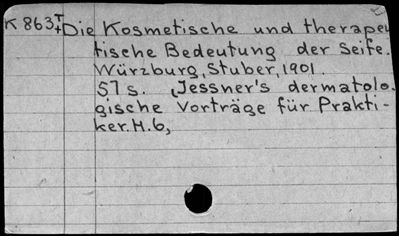 K 863 Die Kosmetische und therapeu
tische Bedeutung der Seife.
Würzburg, Stuber, 1901.
57 s. (Jessner's dermatolo.
gische Vorträge für Prakti-
ker. H. 6,